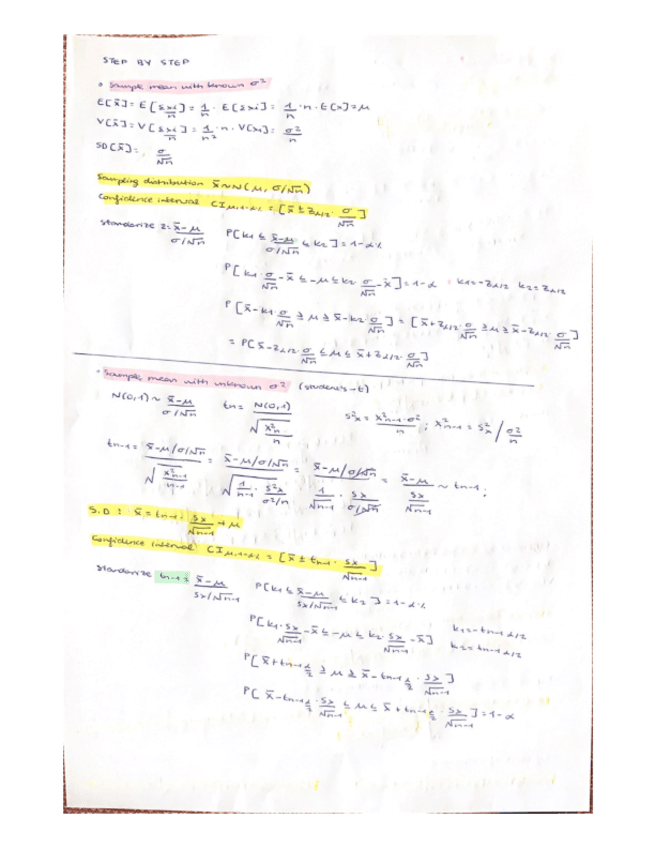 STEP BY STEP
• Sample mean with known σ²
E[x̄] = E[Σxi/n] = 1/n · E[Σxi] = 1/n · n · E(x) = μ
V[x̄] = V[Σxi/n] = 1/n² · n · V(xi) = σ²/n
SD[x̄] = σ/√n
Sampling distribution x̄ ~ N(μ, σ/√n)
Confidence interval CI μ, 1-α% = [x̄ ± zα/2 · σ/√n]
Standarize z = x̄-μ / σ/√n P[k1 ≤ x̄-μ / σ/√n ≤ k2] = 1-α%
P[k1 · σ/√n - x̄ ≤ -μ ≤ k2 · σ/√n - x̄] = 1-α k1 = -zα/2 k2 = zα/2
P[x̄ - k1 · σ/√n ≥ μ ≥ x̄ - k2 · σ/√n] = [x̄ + zα/2 · σ/√n ≥ μ ≥ x̄ - zα/2 · σ/√n]
= P[x̄ - zα/2 · σ/√n ≤ μ ≤ x̄ + zα/2 · σ/√n]
• Sample mean with unknown σ² (student's-t)
N(0,1) ~ x̄-μ / σ/√n tn = N(0,1) / √(x²n / n) s²x = x²n-1 · σ² / n ; x²n-1 = s²x / σ²/n
tn-1 = x̄-μ/σ/√n / √(x²n-1 / n-1) = x̄-μ/σ/√n / √(1/n-1 · s²x / σ²/n) = x̄-μ/σ/√n / 1/√n-1 · sx / σ/√n = x̄-μ / sx/√n-1 ~ tn-1;
S.D : x̄ = tn-1 · sx/√n-1 + μ
Confidence interval CI μ, 1-α% = [x̄ ± tn-1 · sx/√n-1]
Standarize tn-1 = x̄-μ / sx/√n-1 P[k1 ≤ x̄-μ / sx/√n-1 ≤ k2] = 1-α%
P[k1 · sx/√n-1 - x̄ ≤ -μ ≤ k2 · sx/√n-1 - x̄] k1 = -tn-1 α/2
k2 = tn-1 α/2
P[x̄ + tn-1 α/2 ≥ μ ≥ x̄ - tn-1 α/2 · sx/√n-1]
P[x̄ - tn-1 α/2 · sx/√n-1 ≤ μ ≤ x̄ + tn-1 α/2 · sx/√n-1] = 1-α